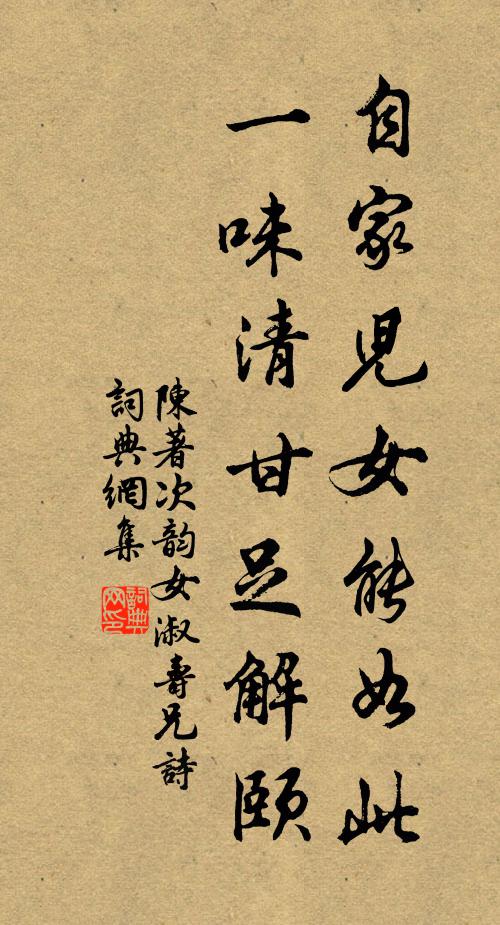 自家児女能如此
一味清甘足解頤
陳著次韵女淑壽兄詩
詞典網集
詞典
网印